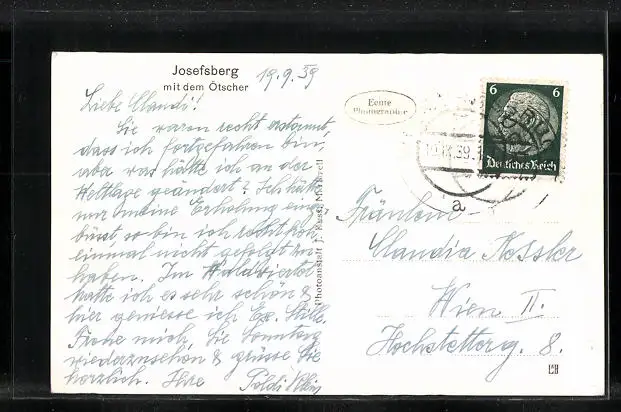 Josefsberg
mit dem Ötscher
19.9.39
Liebe Claudi!
Sie waren recht erstaunt,
dass ich fortgefahren bin,
aber was hätte ich an der
Weltlage geändert? Ich hätte
nur meine Erholung einge-
büsst, so bin ich recht froh
einmal nicht gefolgt zu
haben. Im Waldviertel
hatte ich es sehr schön &
hier geniesse ich die Stille.
Freue mich, Sie Sonntag
wiederzusehen & grüsse Sie
herzlich. Ihre Poldi
Photoanstalt J. Kuss, Mariazell
Echte
Photographie
6 6
Deutsches Reich
.39.
a
Fräulein
Claudia Kessler
Wien II.
Hochstetterg. 8.